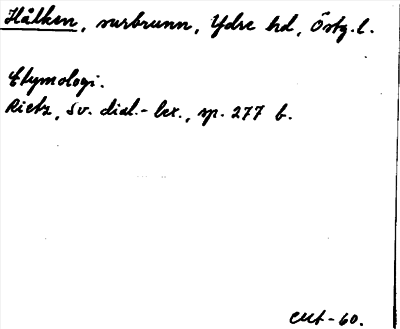 Hålken, surbrunn, Ydre hd, Östg.l.
Etymologi.
Rietz, Sv. dial.-lex., sp. 277 b.
-60.